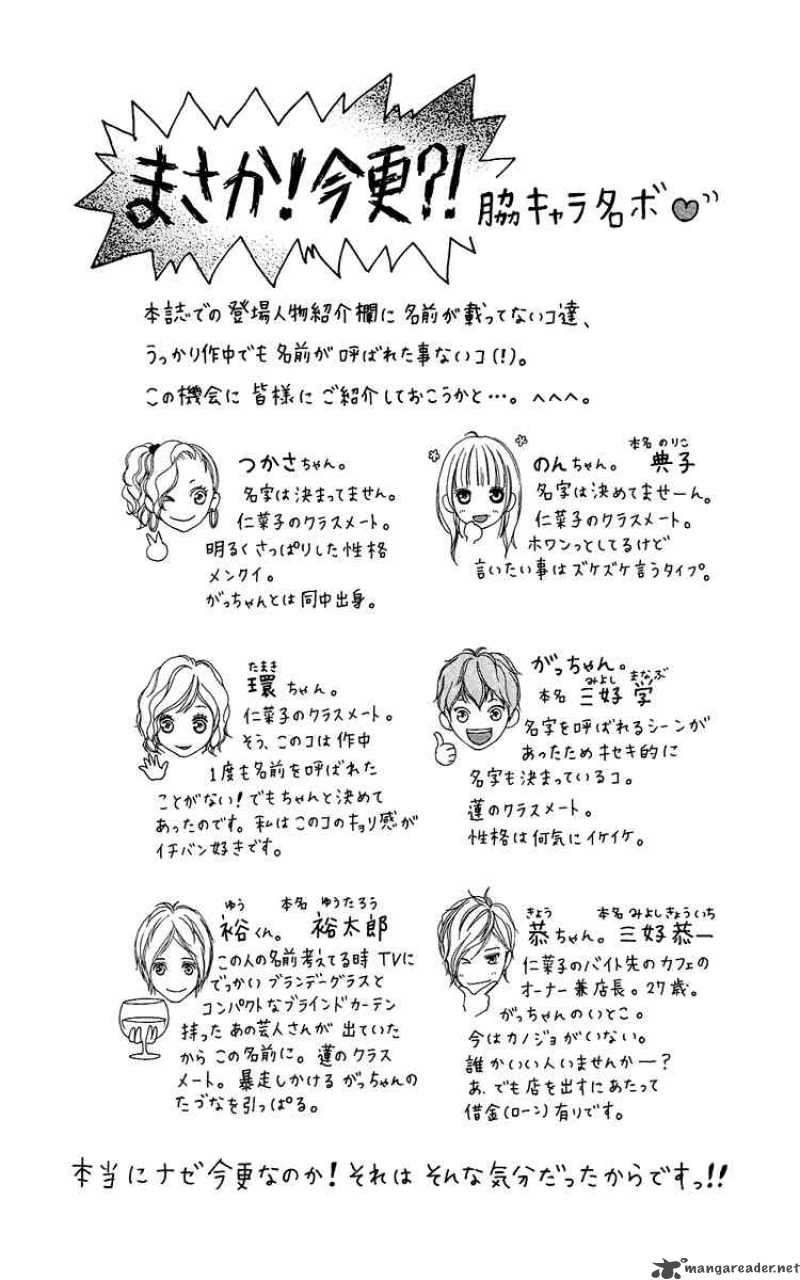 まさか!今更?! 脇キャラ名ボ
本誌での登場人物紹介欄に名前が載ってないコ達、
うっかり作中でも名前が呼ばれた事ないコ(!)。
この機会に皆様にご紹介しておこうかと…。へへへ。
つかさちゃん。
名字は決まってません。
仁菜子のクラスメート。
明るくさっぱりした性格
メンクイ。
がっちゃんとは同中出身。
本名 のりこ
のんちゃん。 典子
名字は決めてませーん。
仁菜子のクラスメート。
ホワンっとしてるけど
言いたい事はズケズケ言うタイプ。
たまき
環ちゃん。
仁菜子のクラスメート。
そう、このコは作中
1度も名前を呼ばれた
ことがない!でもちゃんと決めて
あったのです。私はこのコのキョリ感が
イチバン好きです。
がっちゃん。
みよし まなぶ
本名 三好 学
名字を呼ばれるシーンが
あったためキセキ的に
名字も決まっているコ。
蓮のクラスメート。
性格は何気にイケイケ。
ゆう 本名 ゆうたろう
裕くん。 裕太郎
この人の名前考えてる時TVに
でっかいブランデーグラスと
コンパクトなブラインドカーテン
持ったあの芸人さんが出ていた
からこの名前に。蓮のクラス
メート。暴走しかけるがっちゃんの
たづなを引っぱる。
きょう 本名 みよしきょういち
恭ちゃん。三好恭一
仁菜子のバイト先のカフェの
オーナー兼店長。27歳。
がっちゃんのいとこ。
今はカノジョがいない。
誰かいい人いませんかー?
あ、でも店を出すにあたって
借金(ローン)有りです。
本当にナゼ今更なのか!それはそんな気分だったからですっ!!
mangareader.net